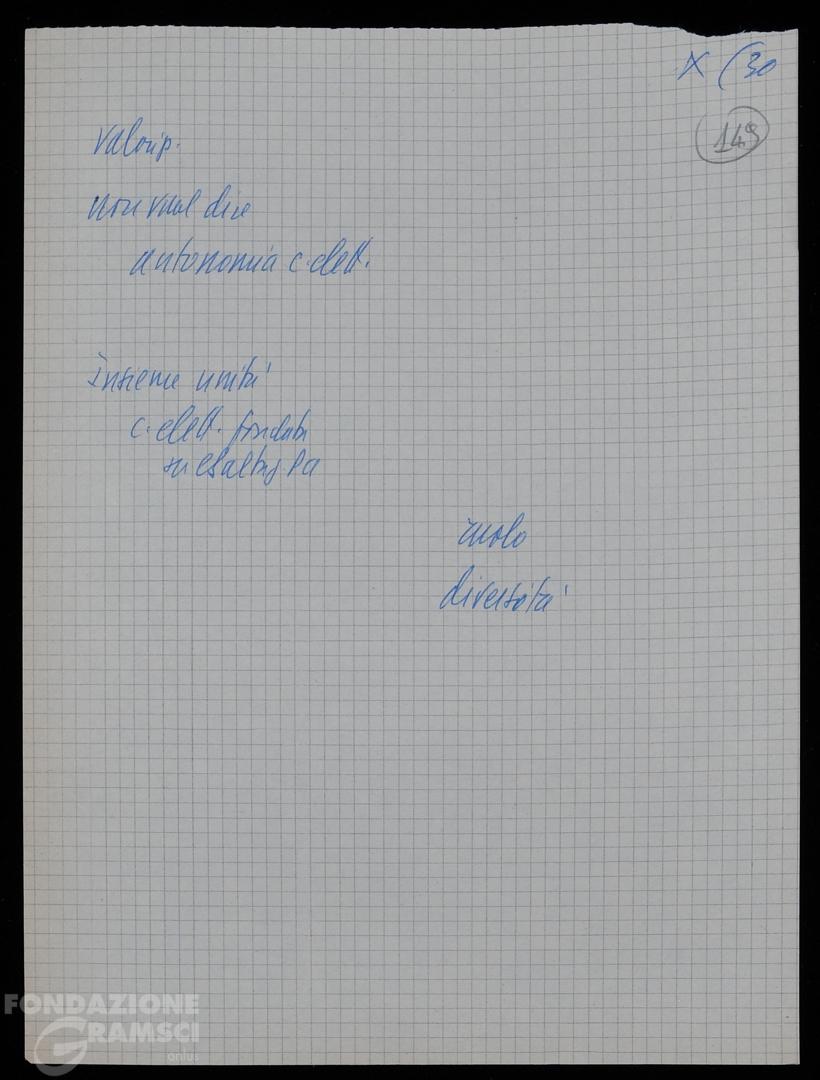 X (30
149
Valorip.
non vuol dire
autonomia c. elett.
Insieme unità
c. elett. fondata
su esaltaz.
ruolo
diversità
FONDAZIONE
GRAMSCI
onlus